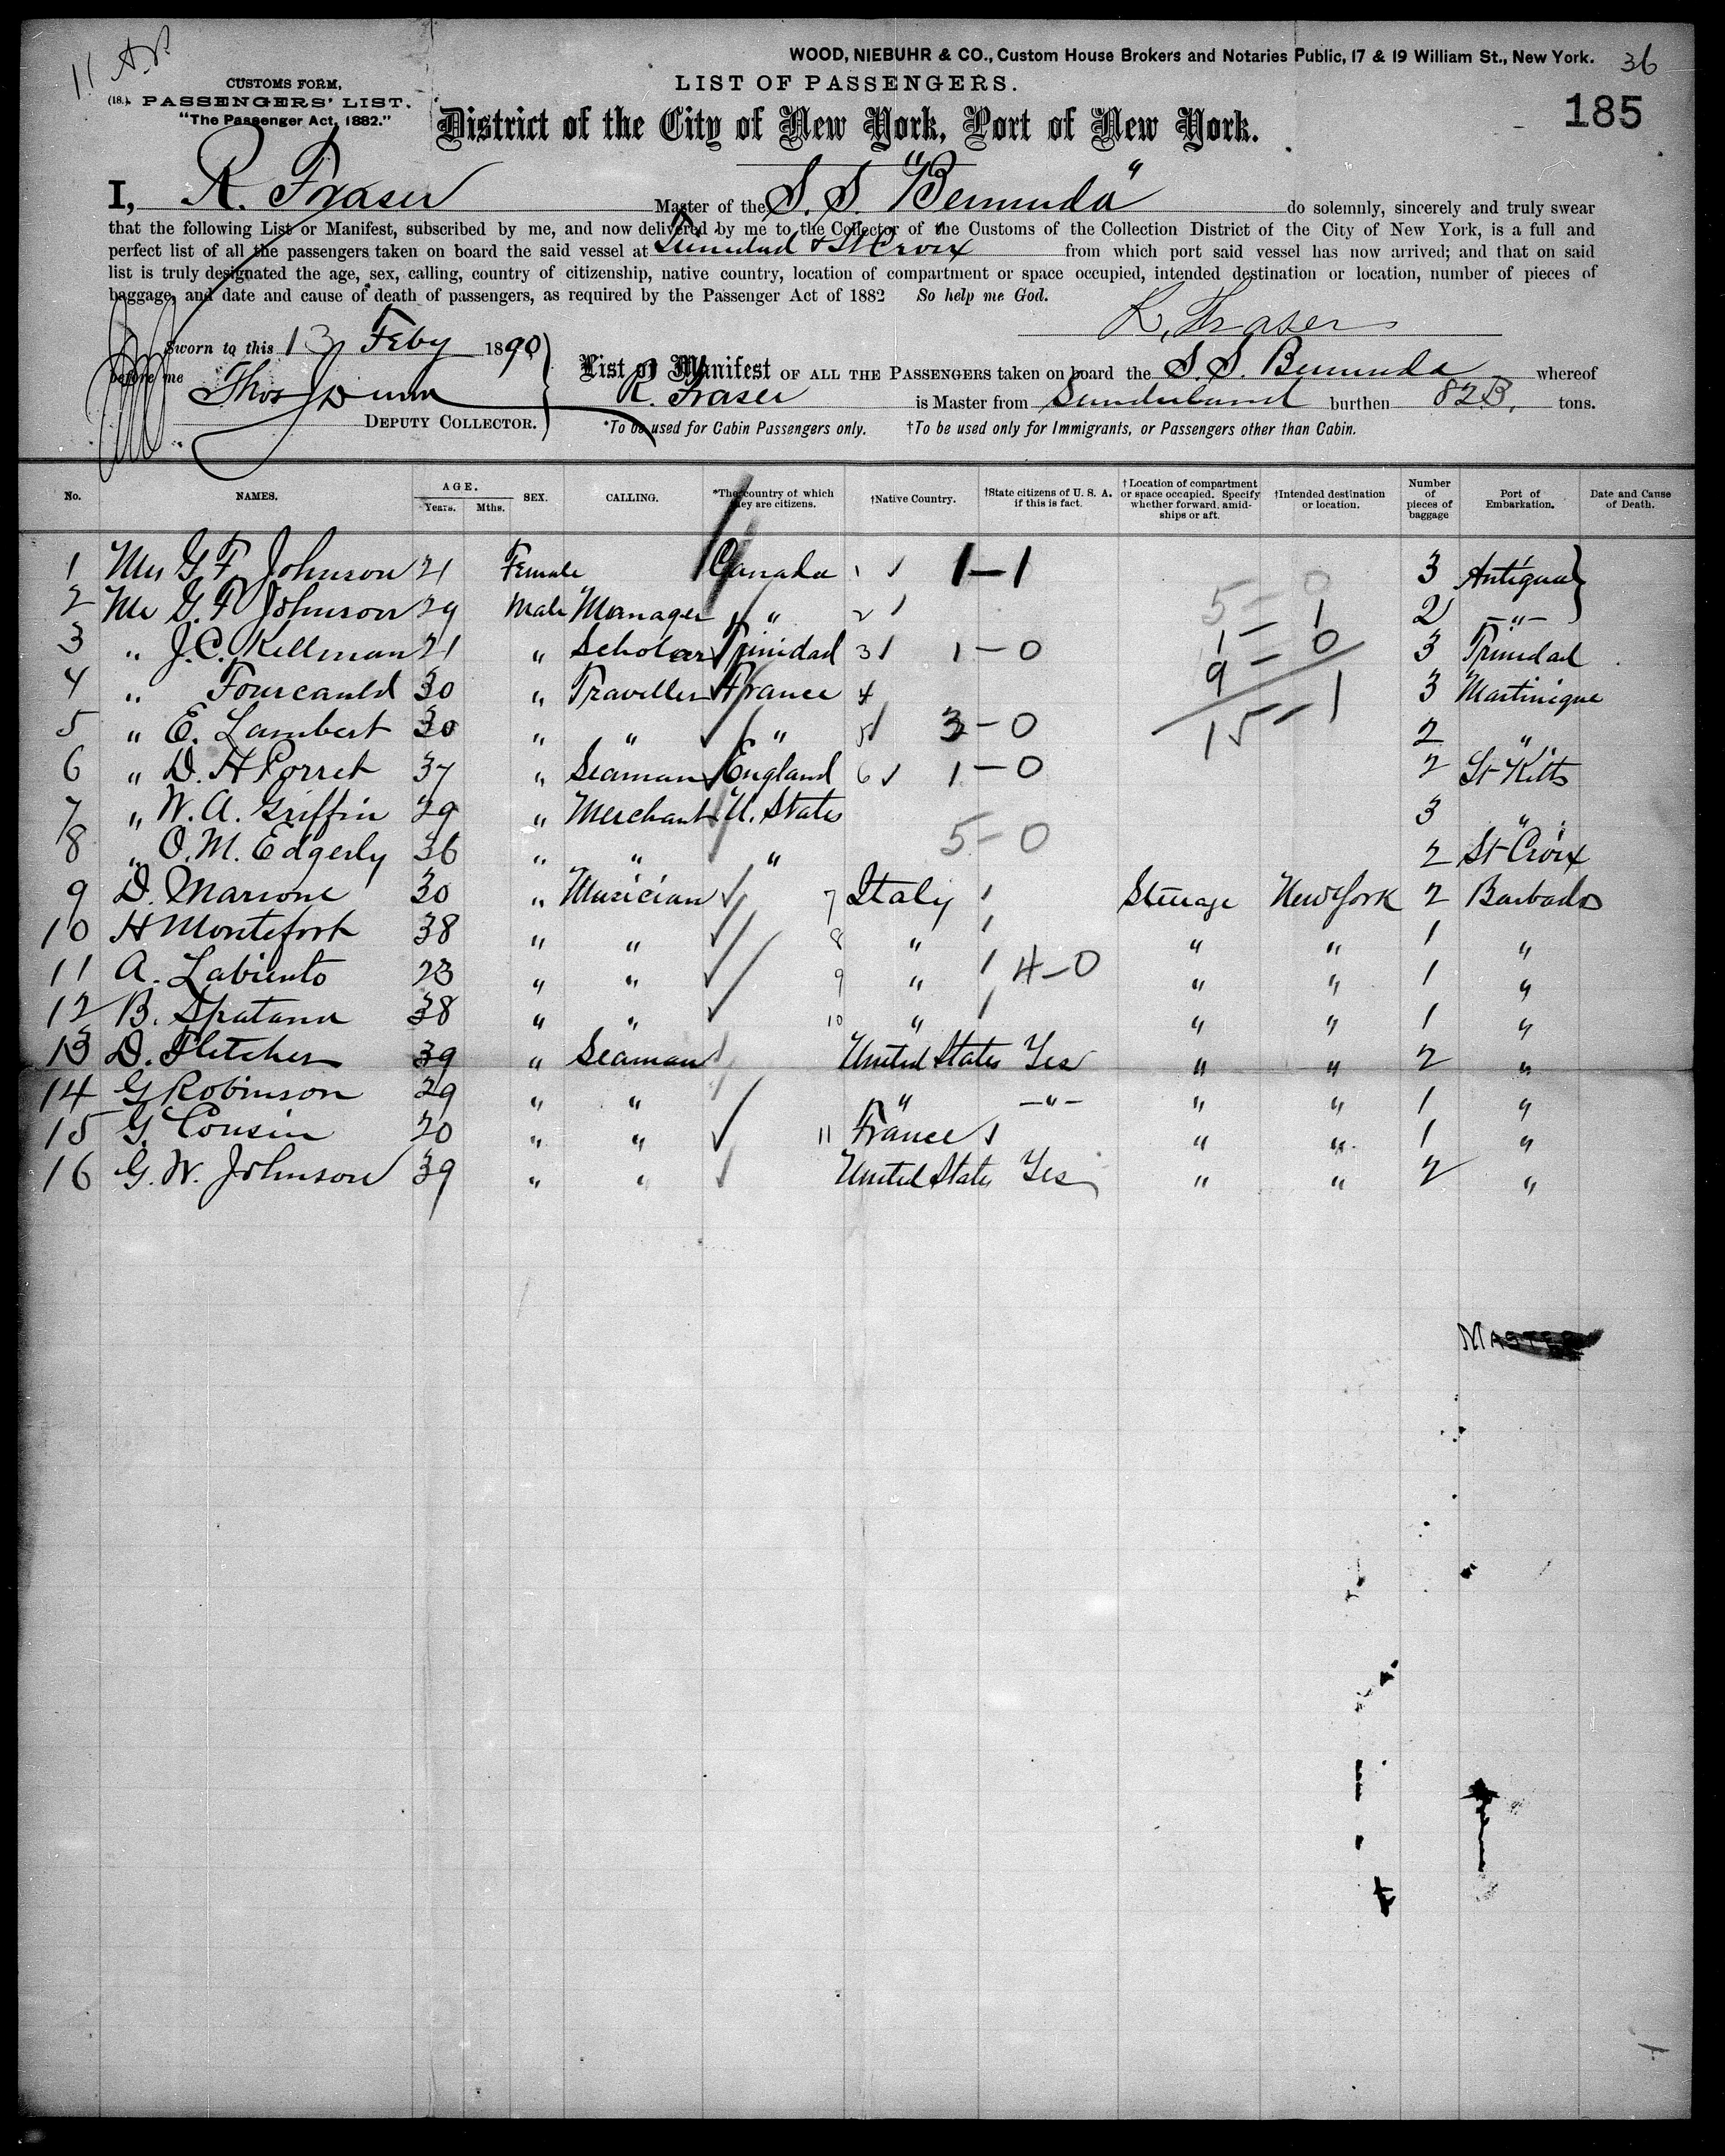 WOOD, NIEBUHR & CO., Custom House Brokers and Notaries Public, 17 & 19 William St., New York. 36
CUSTOMS FORM,
(18.) PASSENGERS' LIST.
"The Passenger Act, 1882."
LIST OF PASSENGERS.
185
District of the City of New York, Port of New York.
I, R. Fraser Master of the S. S. "Bermuda" do solemnly, sincerely and truly swear
that the following List or Manifest, subscribed by me, and now delivered by me to the Collector of the Customs of the Collection District of the City of New York, is a full and
perfect list of all the passengers taken on board the said vessel at Trinidad & St Croix from which port said vessel has now arrived; and that on said
list is truly designated the age, sex, calling, country of citizenship, native country, location of compartment or space occupied, intended destination or location, number of pieces of
baggage, and date and cause of death of passengers, as required by the Passenger Act of 1882 So help me God.
R. Fraser
Sworn to this 13 Feby 1890
before me
Thos Dunn
DEPUTY COLLECTOR.
List or Manifest OF ALL THE PASSENGERS taken on board the S. S. Bermuda whereof
R. Fraser is Master from Sunderland burthen 823. tons.
*To be used for Cabin Passengers only. †To be used only for Immigrants, or Passengers other than Cabin.
No. NAMES. AGE. Years. Mths. SEX. CALLING. *The country of which they are citizens. †Native Country. †State citizens of U. S. A. if this is fact. †Location of compartment or space occupied. Specify whether forward, amidships or aft. †Intended destination or location. Number of pieces of baggage Port of Embarkation. Date and Cause of Death.
1 Mrs G F Johnson 21 Female Canada 1 1-1 3 Antigua
2 Mr G. F. Johnson 29 Male Manager " 2 2 -"-
3 " J. C. Kellman 21 " Scholar Trinidad 3 1-0 3 Trinidad
4 " Fourcauld 30 " Traveller France 4 3 Martinique
5 " E. Lambert 30 " " " 5 3-0 2 "
6 " D. H Porret 37 " Seaman England 6 1-0 2 St Kitts
7 " W. A. Griffin 29 " Merchant U. States 3 "
8 " O. M. Edgerly 36 " " " 5-0 2 St Croix
5-0
1-1
9-0
15-1
9 D. Marione 30 " Musician 7 Italy Steerage New York 2 Barbados
10 H Montefort 38 " " 8 " " " 1 "
11 A. Labiento 23 " " 9 " 4-0 " " 1 "
12 B. Spatana 38 " " 10 " " " 1 "
13 D. Fletcher 39 " Seaman United States Yes " " 2 "
14 G Robinson 29 " " " -"- " " 1 "
15 G. Cousin 20 " " 11 France " " 1 "
16 G. W. Johnson 39 " " United States Yes " " 2 "
MASTER